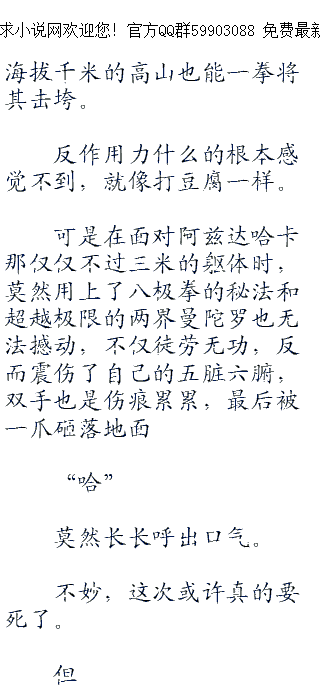 求小说网欢迎您！官方QQ群59903088 免费最新
海拔千米的高山也能一拳将
其击垮。
反作用力什么的根本感
觉不到，就像打豆腐一样。
可是在面对阿兹达哈卡
那仅仅不过三米的躯体时，
莫然用上了八极拳的秘法和
超越极限的两界曼陀罗也无
法撼动，不仅徒劳无功，反
而震伤了自己的五脏六腑，
双手也是伤痕累累，最后被
一爪砸落地面
“哈”
莫然长长呼出口气。
不妙，这次或许真的要
死了。
但